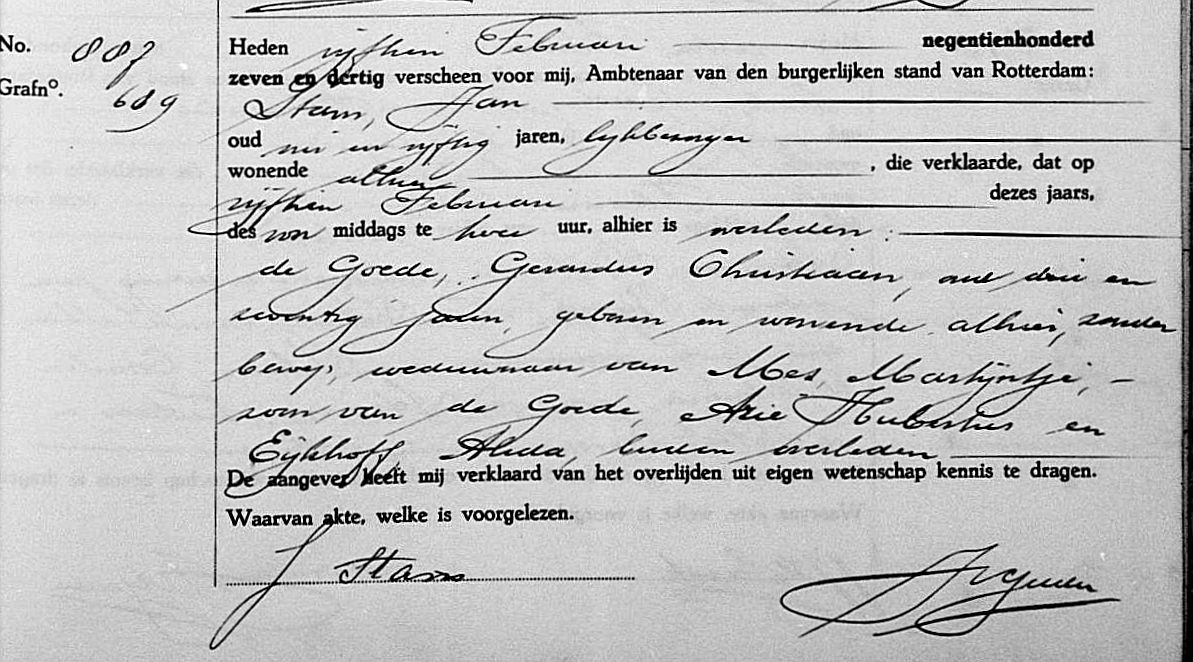 No. 887
Grafno. 689
Heden vijftien Februari negentienhonderd
zeven en dertig verscheen voor mij, Ambtenaar van den burgerlijken stand van Rotterdam:
Stam, Jan
oud en vijftig jaren, lijkbezorger
wonende alhier , die verklaarde, dat op
vijftien Februari dezes jaars,
des voor middags te twee uur, alhier is overleden:
de Goede, Gerardus Christiaan, oud drie en
zeventig jaren, geboren en wonende alhier, zonder
beroep, weduwnaar van Mes, Martijntje, –
zoon van de Goede, Arie Hubertus en
Eijkhoff, Alida, beiden overleden
De aangever heeft mij verklaard van het overlijden uit eigen wetenschap kennis te dragen.
Waarvan akte, welke is voorgelezen.
J Stam